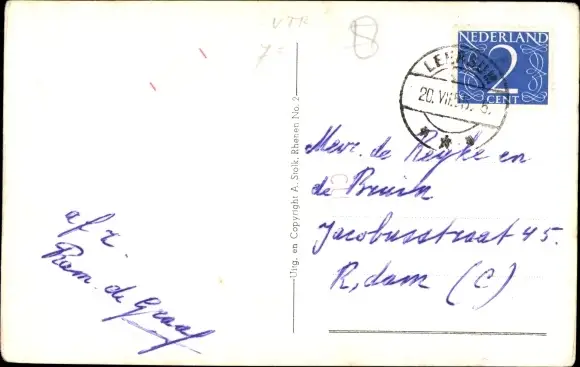 VTR
7=
8
NEDERLAND
2
CENT
LEERSUM
20. VII
Uitg. en Copyright A. Stolk, Rhenen No. 2
Mevr. de Reyke en
de Bruin
Jacobusstraat 45.
R,dam (C)
afz.
Fam. de Graaf